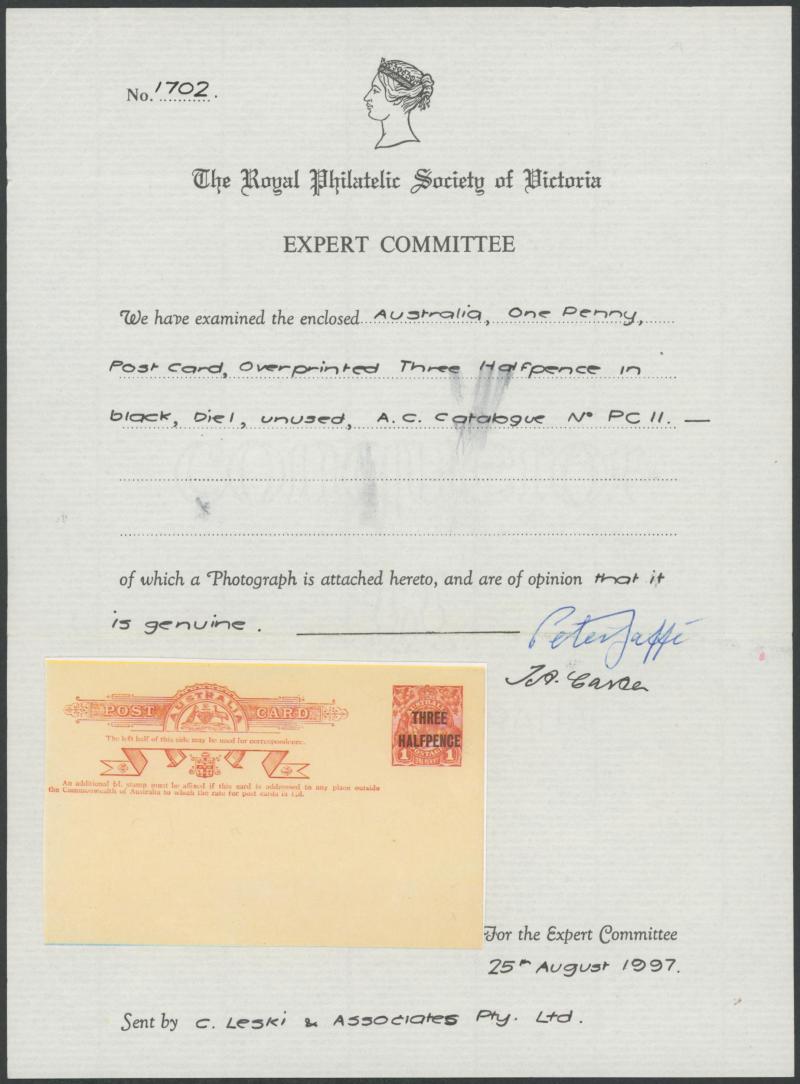 No. 1702.
The Royal Philatelic Society of Victoria
EXPERT COMMITTEE
We have examined the enclosed Australia, One Penny,
Post Card, Overprinted Three Halfpence in
black, Die 1, unused, A.C. Catalogue No PC 11. —
of which a Photograph is attached hereto, and are of opinion that it
is genuine.
Peter Jaffé
POST AUSTRALIA CARD
The left half of this side may be used for correspondence.
An additional ½d. stamp must be affixed if this card is addressed to any place outside
the Commonwealth of Australia to which the rate for post cards is 1½d.
THREE
HALFPENCE
1 1
ONE PENNY
For the Expert Committee
25th August 1997.
Sent by C. Leski & Associates Pty. Ltd.